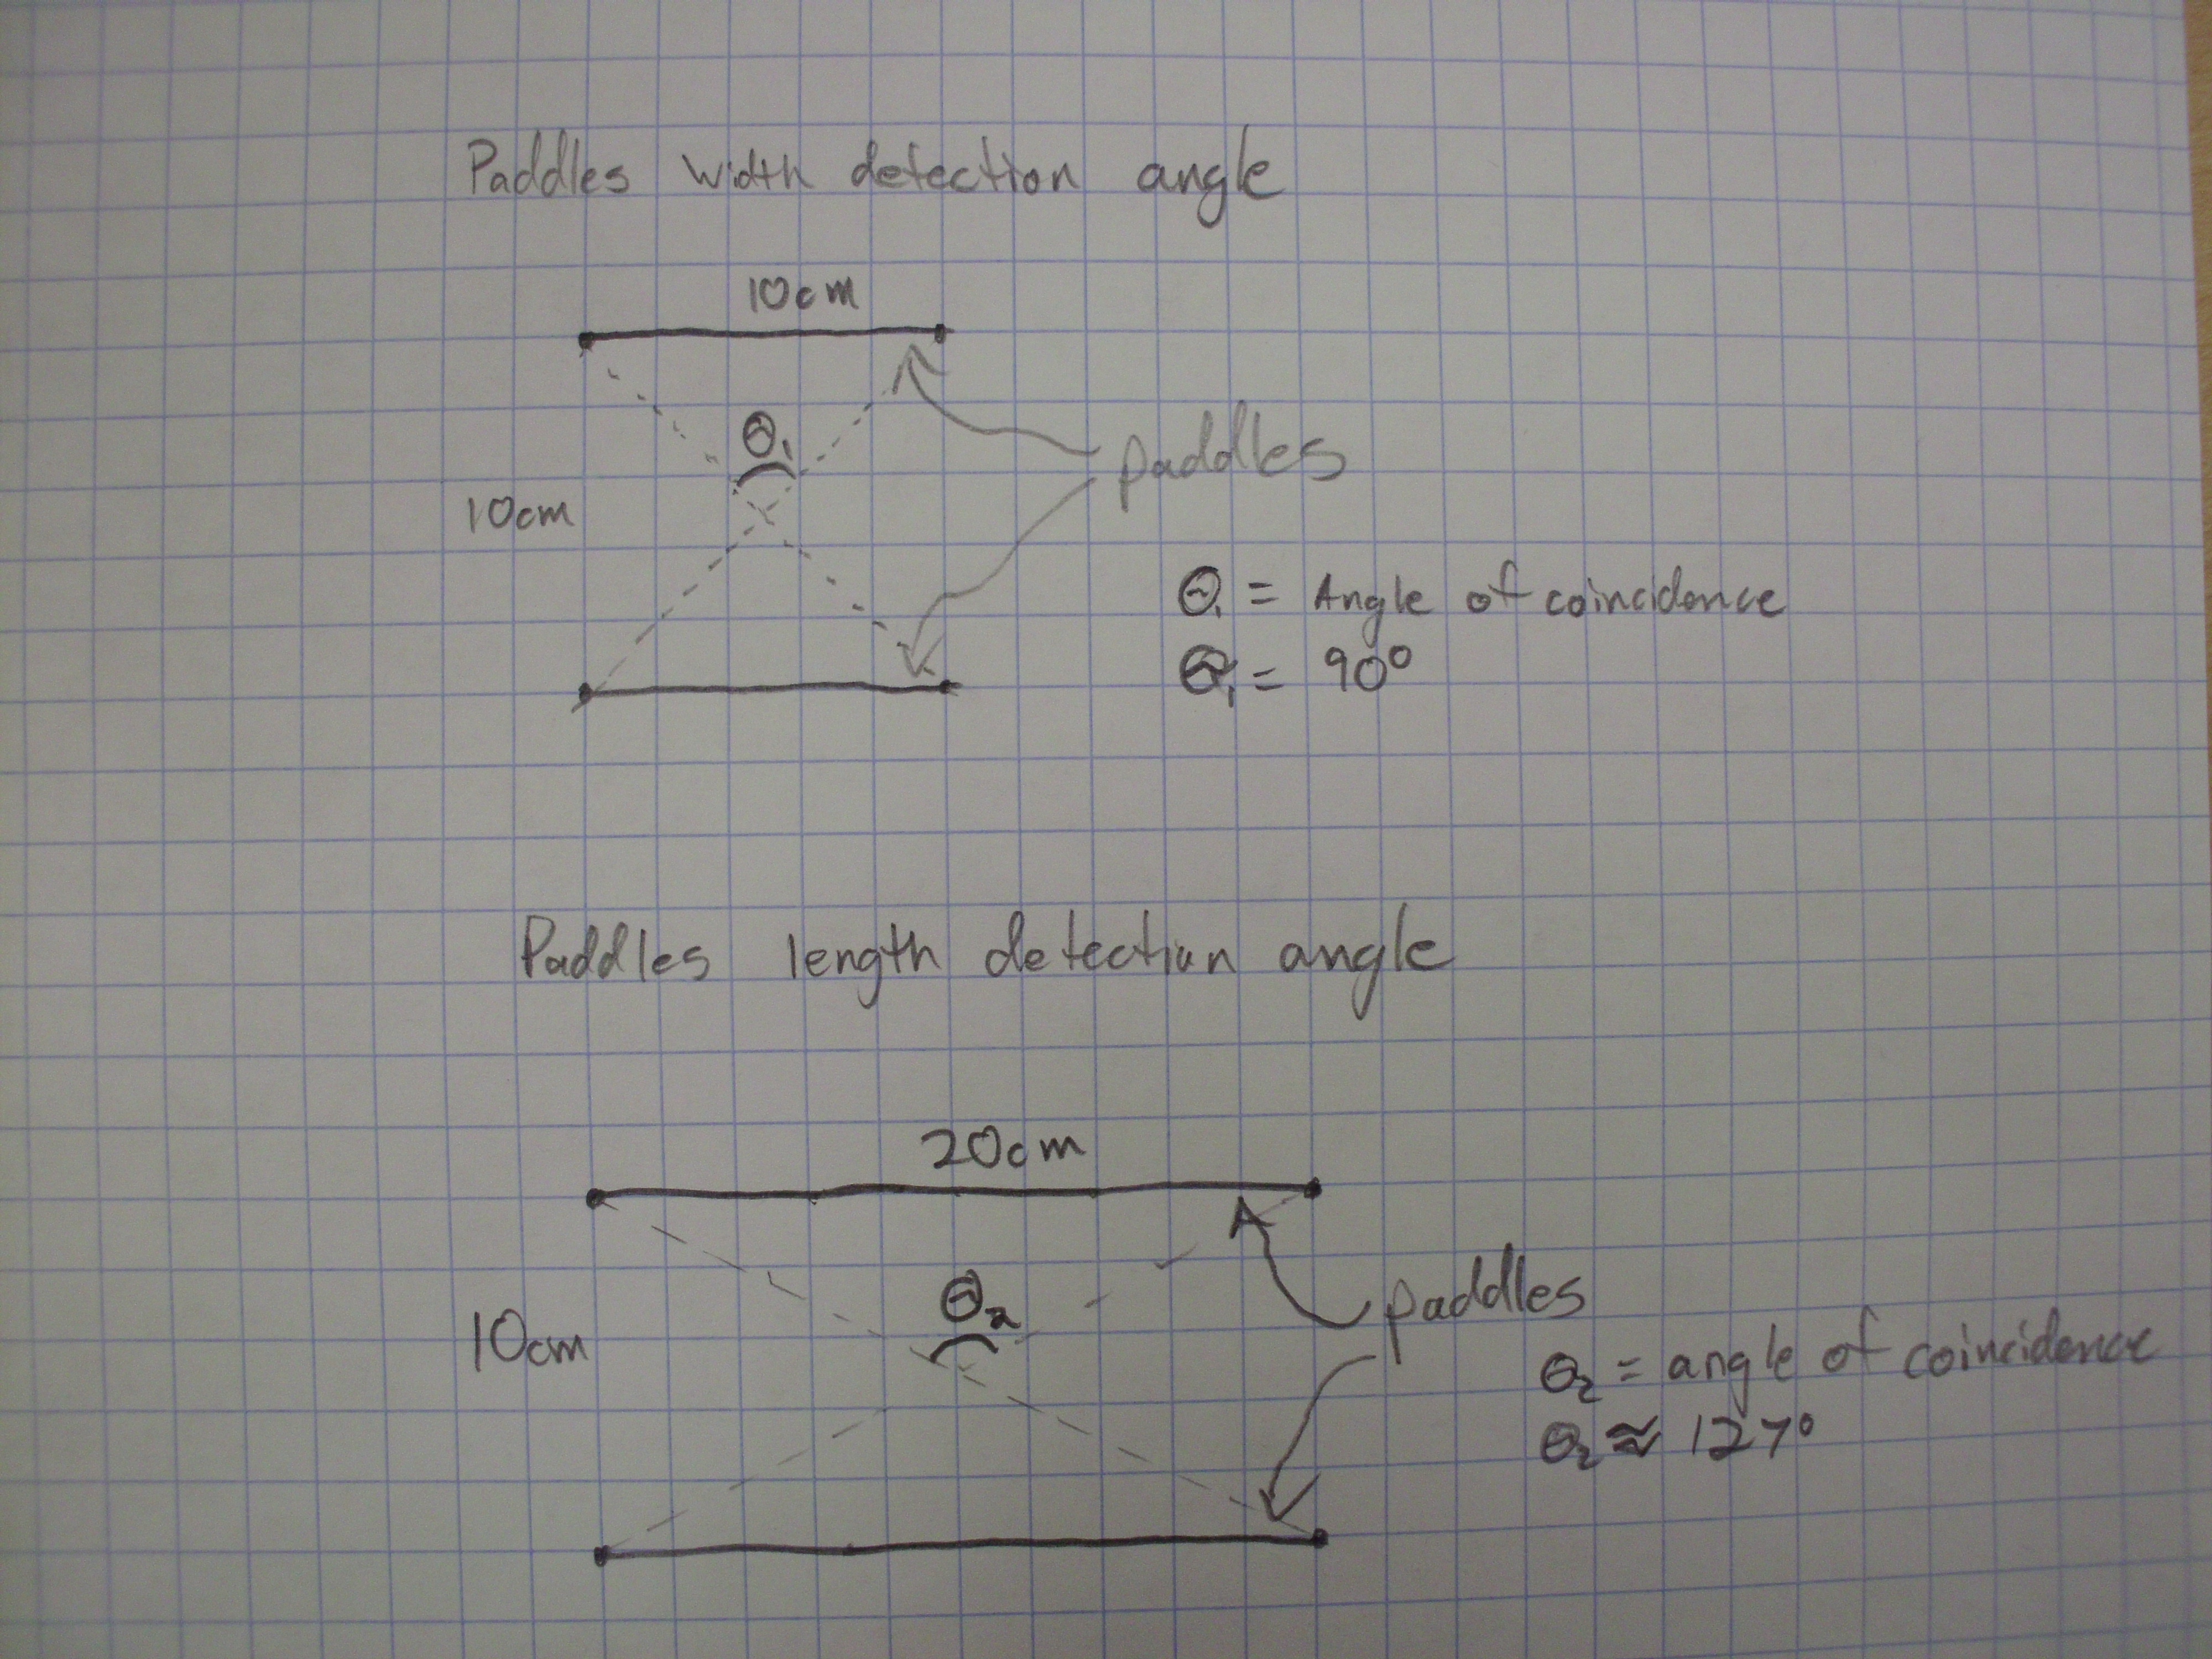 Paddles width detection angle
10cm
θ₁
paddles
10cm
θ₁ = Angle of coincidence
θ₁ = 90°
Paddles length detection angle
20cm
θ₂
paddles
10cm
θ₂ = angle of coincidence
θ₂ ≈ 127°